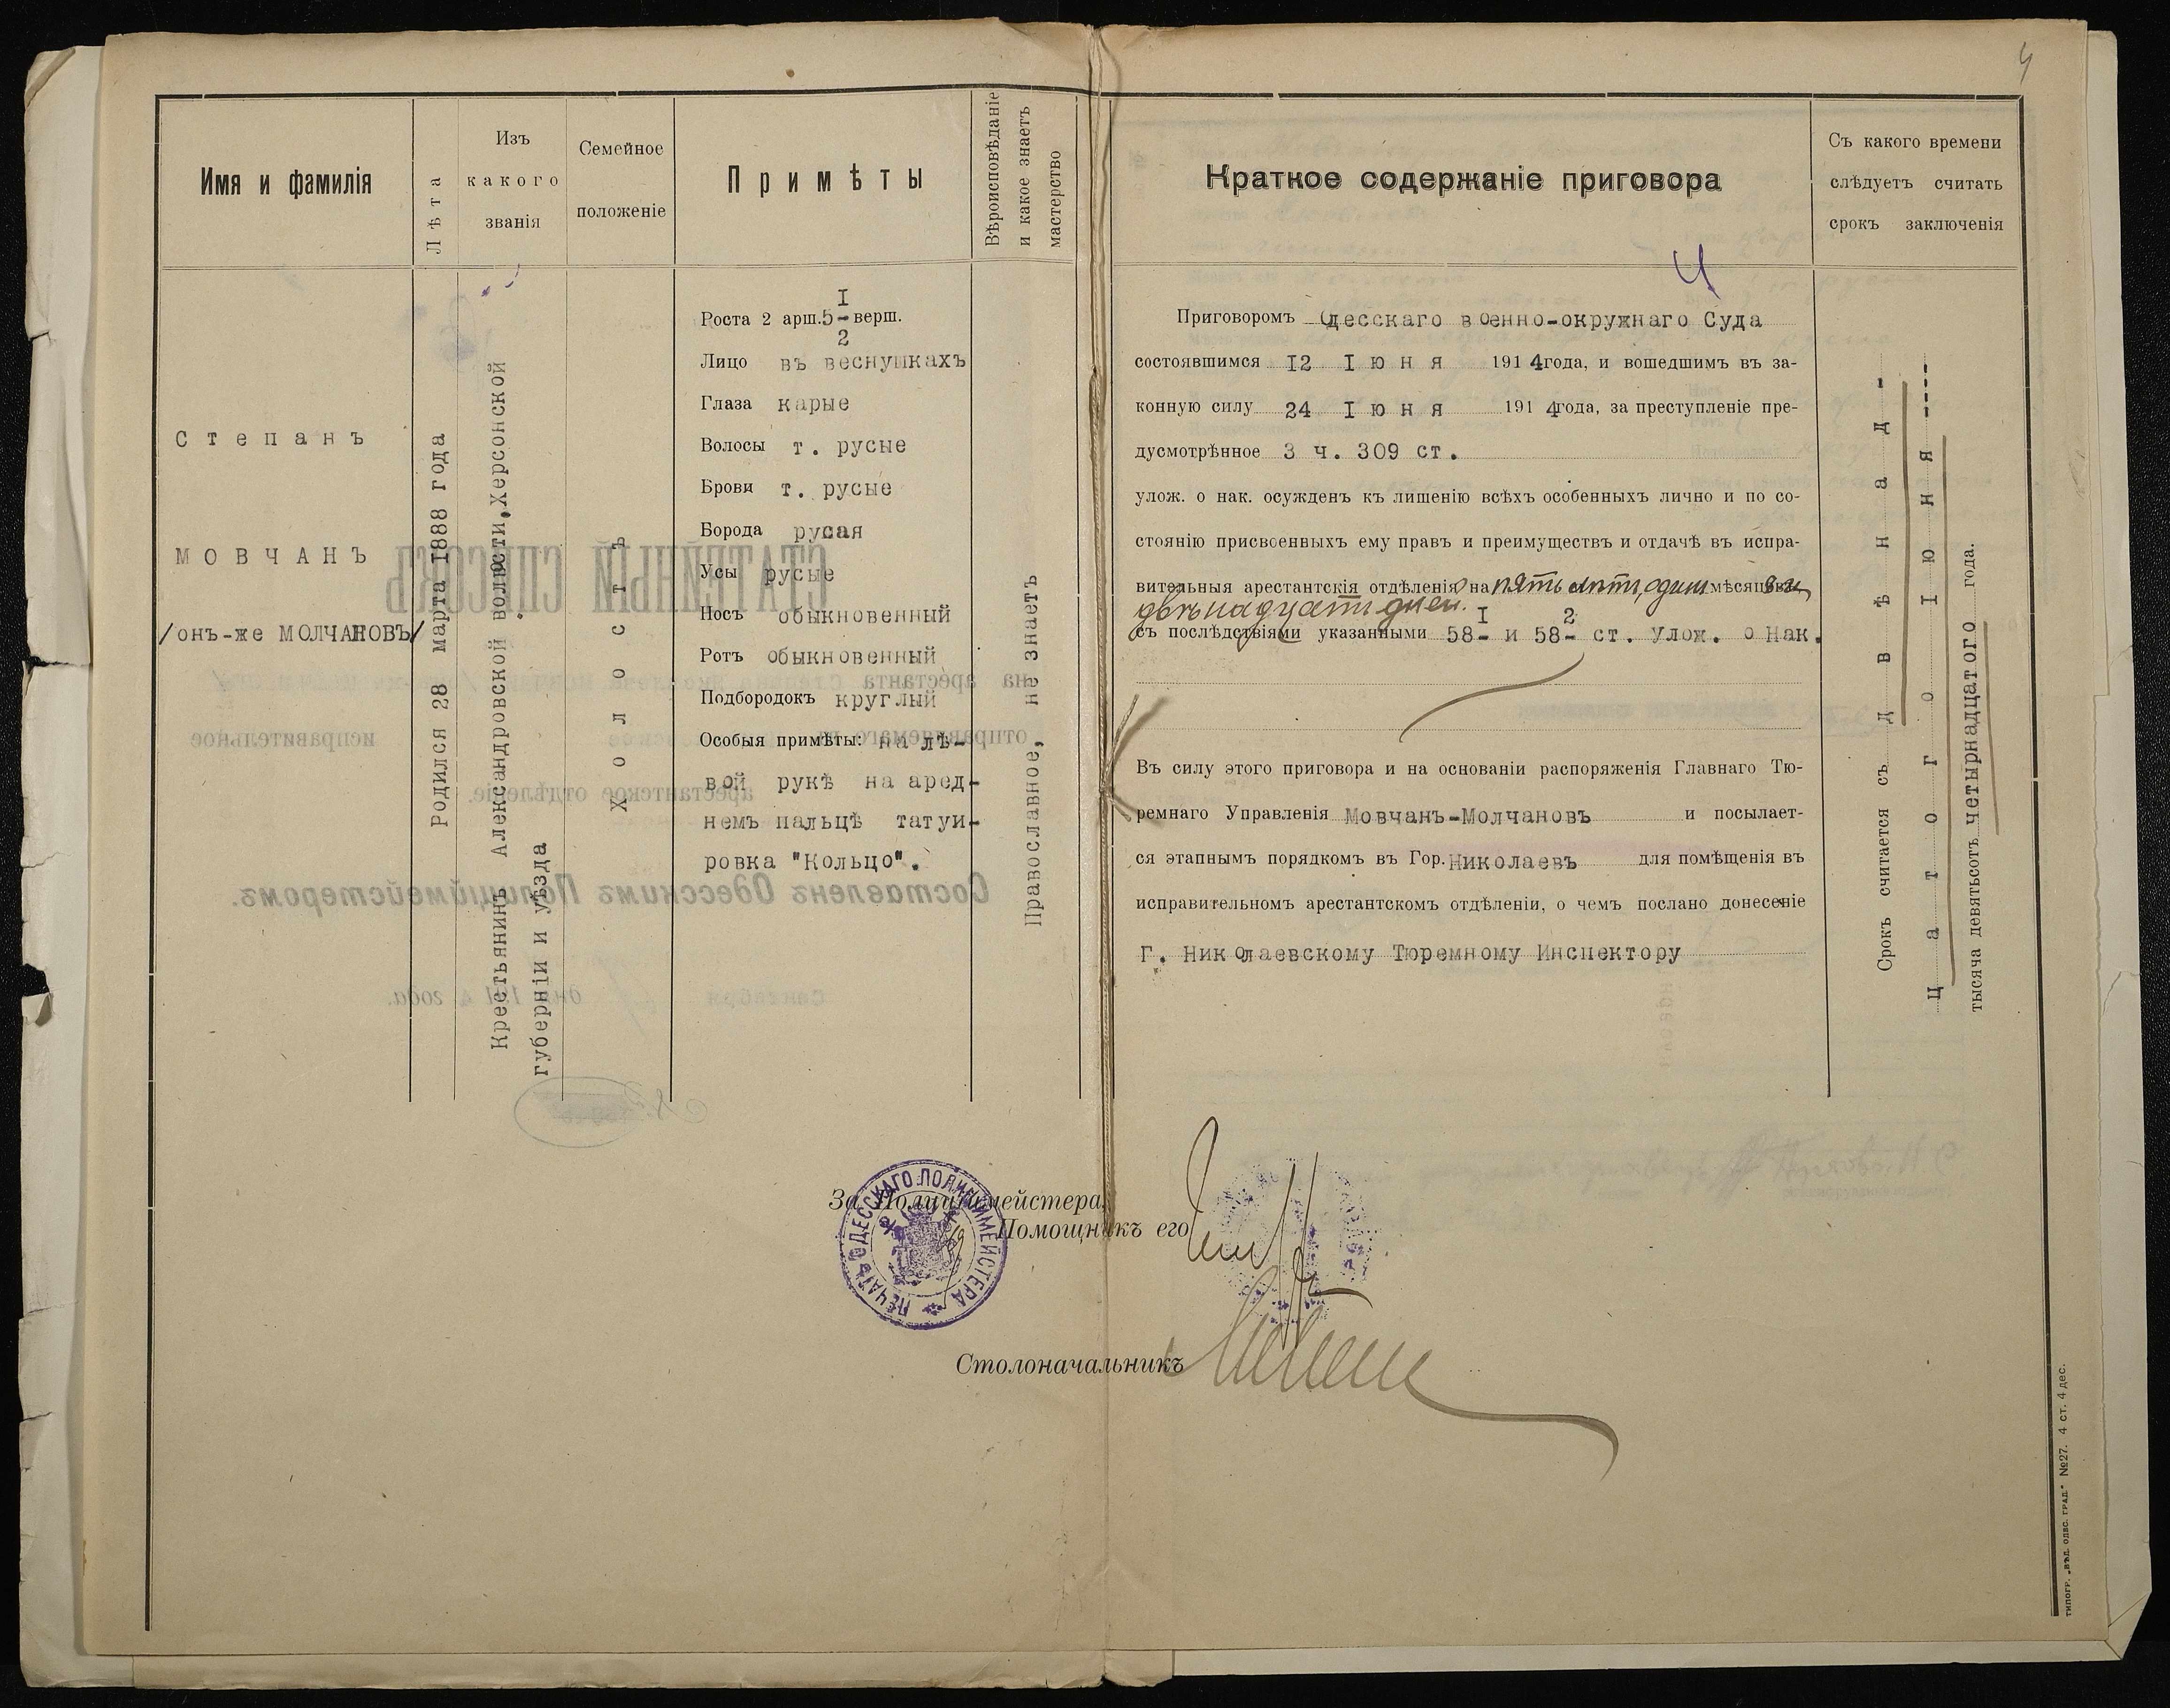 4
Имя и фамилія
Лѣта
Изъ
какого
званія
Семейное
положеніе
Примѣты
Вѣроисповѣданіе
и какое знаетъ
мастерство
Степанъ
МОВЧАНЪ
/онъ-же МОЛЧАНОВЪ/
Родился 28 марта 1888 года
Крестьянинъ Александровской волости, Херсонской
губерніи и уѣзда
Холостъ
Роста 2 арш. 5 1/2 верш.
Лицо въ веснушкахъ
Глаза карые
Волосы т. русые
Брови т. русые
Борода русая
Усы русые
Носъ обыкновенный
Ротъ обыкновенный
Подбородокъ круглый
Особыя примѣты: на лѣ-
вой рукѣ на аред-
немъ пальцѣ татуи-
ровка "Кольцо".
Православное, не знаетъ
Краткое содержаніе приговора
Съ какого времени
слѣдуетъ считать
срокъ заключенія
4
Приговоромъ Одесскаго военно-окружнаго Суда
состоявшимся 12 Іюня 1914 года, и вошедшимъ въ за-
конную силу 24 Іюня 1914 года, за преступленіе пре-
дусмотрѣнное 3 ч. 309 ст.
улож. о нак. осужденъ къ лишенію всѣхъ особенныхъ лично и по со-
стоянію присвоенныхъ ему правъ и преимуществъ и отдачѣ въ испра-
вительныя арестантскія отдѣленія на пять лѣтъ, одинъ мѣсяцъ
двѣнадцать дней.
съ послѣдствіями указанными 58-1 и 58-2 ст. Улож. о Нак.
Въ силу этого приговора и на основаніи распоряженія Главнаго Тю-
ремнаго Управленія Мовчанъ-Молчановъ и посылает-
ся этапнымъ порядкомъ въ Гор. Николаевъ для помѣщенія въ
исправительномъ арестантскомъ отдѣленіи, о чемъ послано донесеніе
Г. Николаевскому Тюремному Инспектору
Срокъ считается съ двѣнад-
цатого Іюня ----
тысяча девятьсотъ четырнадцатого года.
За Полиціймейстера,
Помощникъ его
ПЕЧАТЬ ОДЕССКАГО ПОЛИЦІЙМЕЙСТЕРА
Столоначальникъ
ТИПОГР. „ВѢД. ОДЕС. ГРАД.“ №27. 4 СТ. 4 дес.